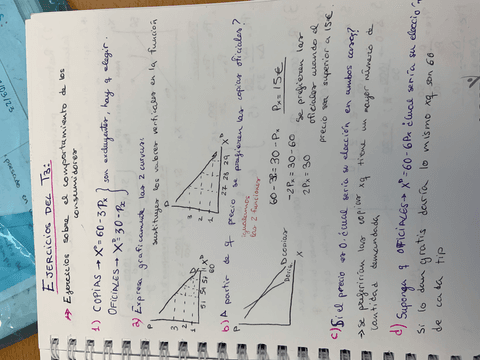 EJERCICIOS DEL T3:
→ Ejercicios sobre el comportamiento de los
consumidores
1) COPIAS → Xᴰ = 60 - 3Pₓ } son excluyentes, hay q elegir.
OFICIALES → Xᴰ = 30 - Pₓ
2) Expresa gráficamente las 2 curvas:
sustituyes los valores verticales en la función
P
3
2
1
51 54 57 Xᴰ
60
P
3
2
1
27 28 29 Xᴰ
b) A partir de q precio se prefieren las copias oficiales?
igualamos
las 2 funciones
60 - 3P = 30 - Pₓ
-2Pₓ = 30 - 60
2Pₓ = 30
Pₓ = 15€
Se prefieren las
oficiales cuando el
precio sea superior a 15€.
P
D copias
X
c) Si el precio es 0. ¿cuál sería su elección en ambos casos?
→ Se preferirían las copias xq tiene un mayor número de
cantidad demandada
d) Suponga q OFICIALES → Xᴰ = 60 - 6Pₓ ¿cuál sería su elección
si lo dan gratis daría lo mismo xq son 60
de cada tipo